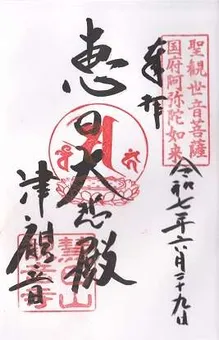 聖観世音菩薩
国府阿弥陀如来
奉拝
令和七年六月二十九日
恵日大悲殿
津観音
恵日山
観音寺